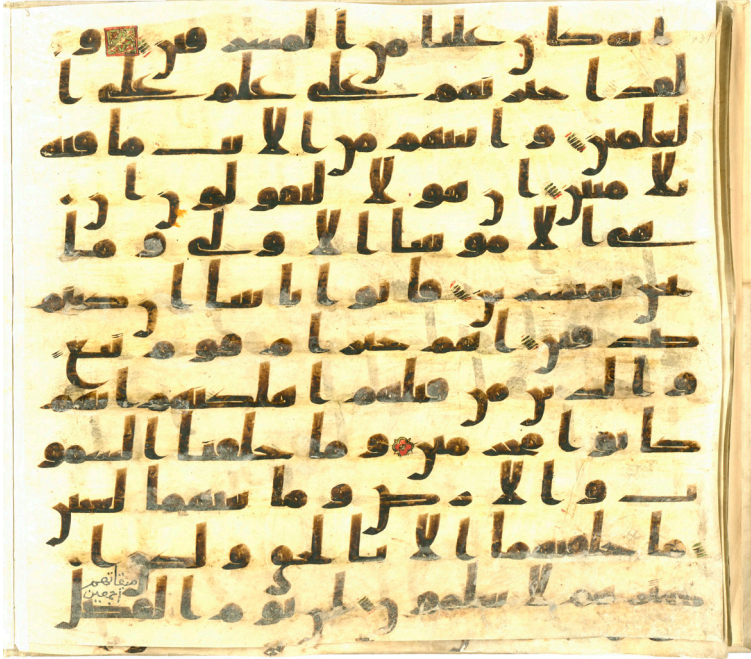 انه كان عليا من المسرفين و
لقد اخترنهم على علم على ا
لعلمين و اتينهم من الايت ما فيه
بلا مبين ان هولا ليقولون ان
هي الا موتتنا الاولى و ما
نحن بمنشرين فاتوا بابانا ان كنتم
صدقين اهم خير ام قوم تبع
و الذين من قبلهم اهلكنهم انهم
كانوا مجرمين و ما خلقنا السمو
ت و الارض و ما بينهما لعبين
ما خلقنهما الا بالحق و لكن ا
كثرهم لا يعلمون ان يوم الفصل
ميقاتهم
اجمعين